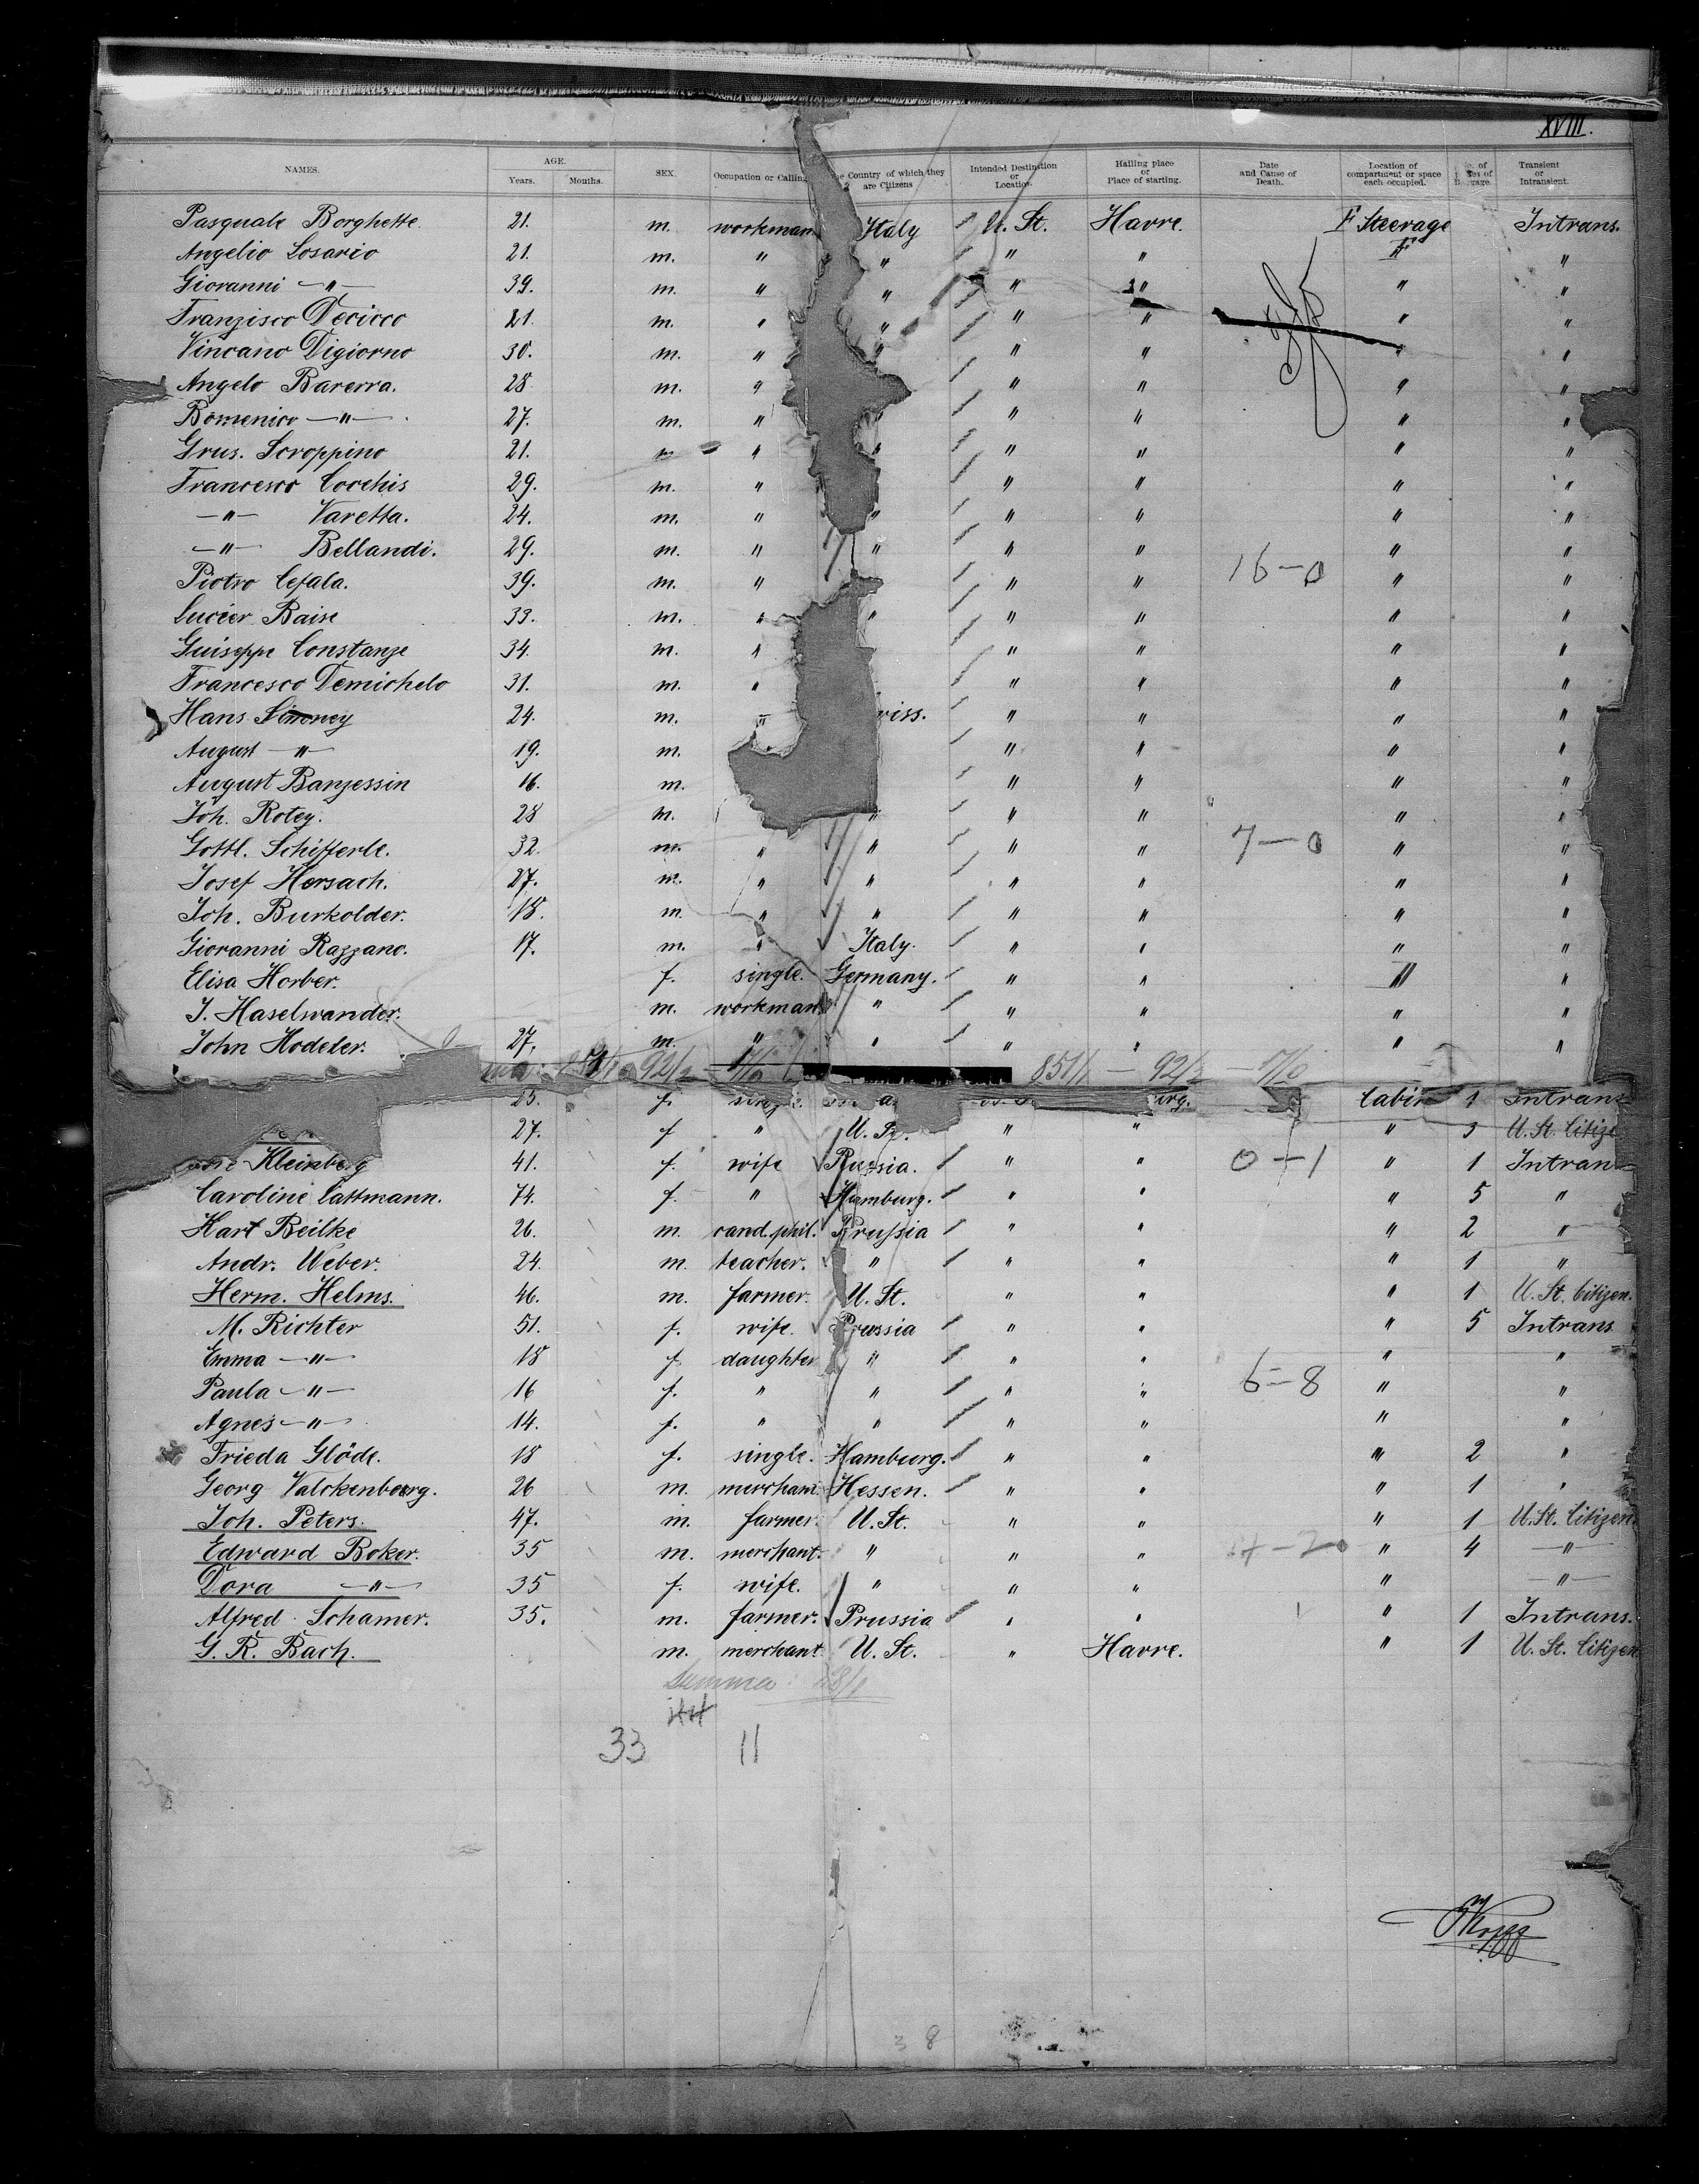 XVIII.
NAMES. AGE. Years. Months. SEX. Occupation or Calling. Country of which they are Citizens Intended Destination or Location. Hailing place or Place of starting. Date and Cause of Death. Location of compartment or space each occupied. of Transient or Intransient.
Pasquale Borghette 21. m. workman Italy U. St. Havre. F Steerage Intrans.
Angelio Losario 21. m. " " " " " "
Giovanni —"— 39. m. " " " " " "
Franzisco Decicco 21. m. " " " " " "
Vincano Digiorno 30. m. " " " " " "
Angelo Barerra. 28. m. " " " " "
Domenico —"— 27. m. " " " " "
Grus. Scroppino 21. m " " " " " "
Francesco Cocchis 29. m. " " " " "
—"— Varetta. 24. m. " " " " " "
—"— Bellandi. 29. m. " " " " " "
Piotro Cefala. 39. m. " " " 16—0 " "
Lucier Baise 33. m. " " " " " "
Guiseppe Constanze 34. m. " " " " "
Francesco Demichelo 31. m. " " " " "
Hans Simoney 24. m. " riss. " " " "
August —"— 19. m. " " " "
August Banzessin 16. m. " " " "
Joh. Rotey. 28 m. " " " " "
Gottl. Schifferle. 32. m. " " " " 7—0 " "
Josef Hersach. 27. m. " " " " " "
Joh. Burkolder. 18. m. " " " " " "
Giovanni Razzano. 17. m. " Italy. " " " "
Elisa Horber. f. single. Germany. " " " "
J. Haselwander. m. workman " " " " "
John Hodeler. 27. m. " " " " " "
851/1 — 92/2 — 7/0
25. f. single. Cabin 1 Intrans
27. f " U. St. " " " 3 U. St. Citize
Kleinberg 41. f. wife Russia. " " 0—1 " 1 Intrans
Caroline Cattmann. 74. f. " Hamburg. " " " 5 "
Hart Beilke 26. m. cand. phil. Prussia " " " 2 "
Andr. Weber. 24. m. teacher. " " " " 1 "
Herm. Helms. 46. m. farmer. U. St. " " " 1 U. St. Citizen.
M. Richter 51. f. wife. Prussia " " " 5 Intrans
Emma —"— 18 f. daughter " " " " "
Paula —"— 16 f. " " " " 6—8 " "
Agnes —"— 14. f. " " " " " "
Frieda Glöde. 18 f. single. Hamburg. " " " 2 "
Georg Valckenberg. 26 m. merchant Hessen. " " " 1 "
Joh. Peters. 47. m. farmer. U. St. " " " 1 U. St. Citizen.
Edward Boker. 35 m. merchant. " " " 4—20 " 4 —"—
Dora —"— 35 f. wife. " " " " —"—
Alfred Schamer. 35. m. farmer. Prussia " " " 1 Intrans.
G. R. Bach. m. merchant U. St. " Havre. " 1 U. St. Citizen
Summa 18/1
33 11
3 8